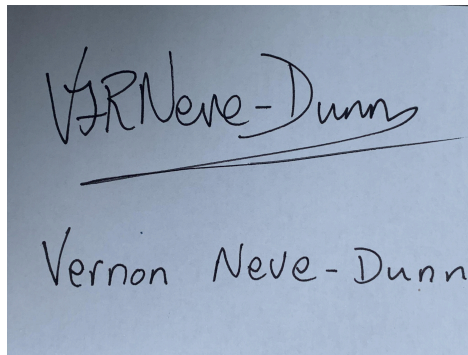 VJRNeve-Dunn
Vernon Neve-Dunn